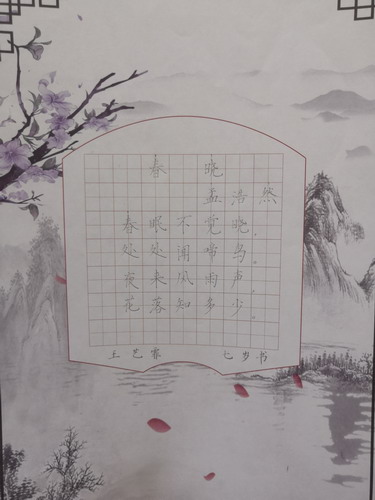 春晓
孟浩然
春眠不觉晓，
处处闻啼鸟。
夜来风雨声，
花落知多少。
王艺 七岁书